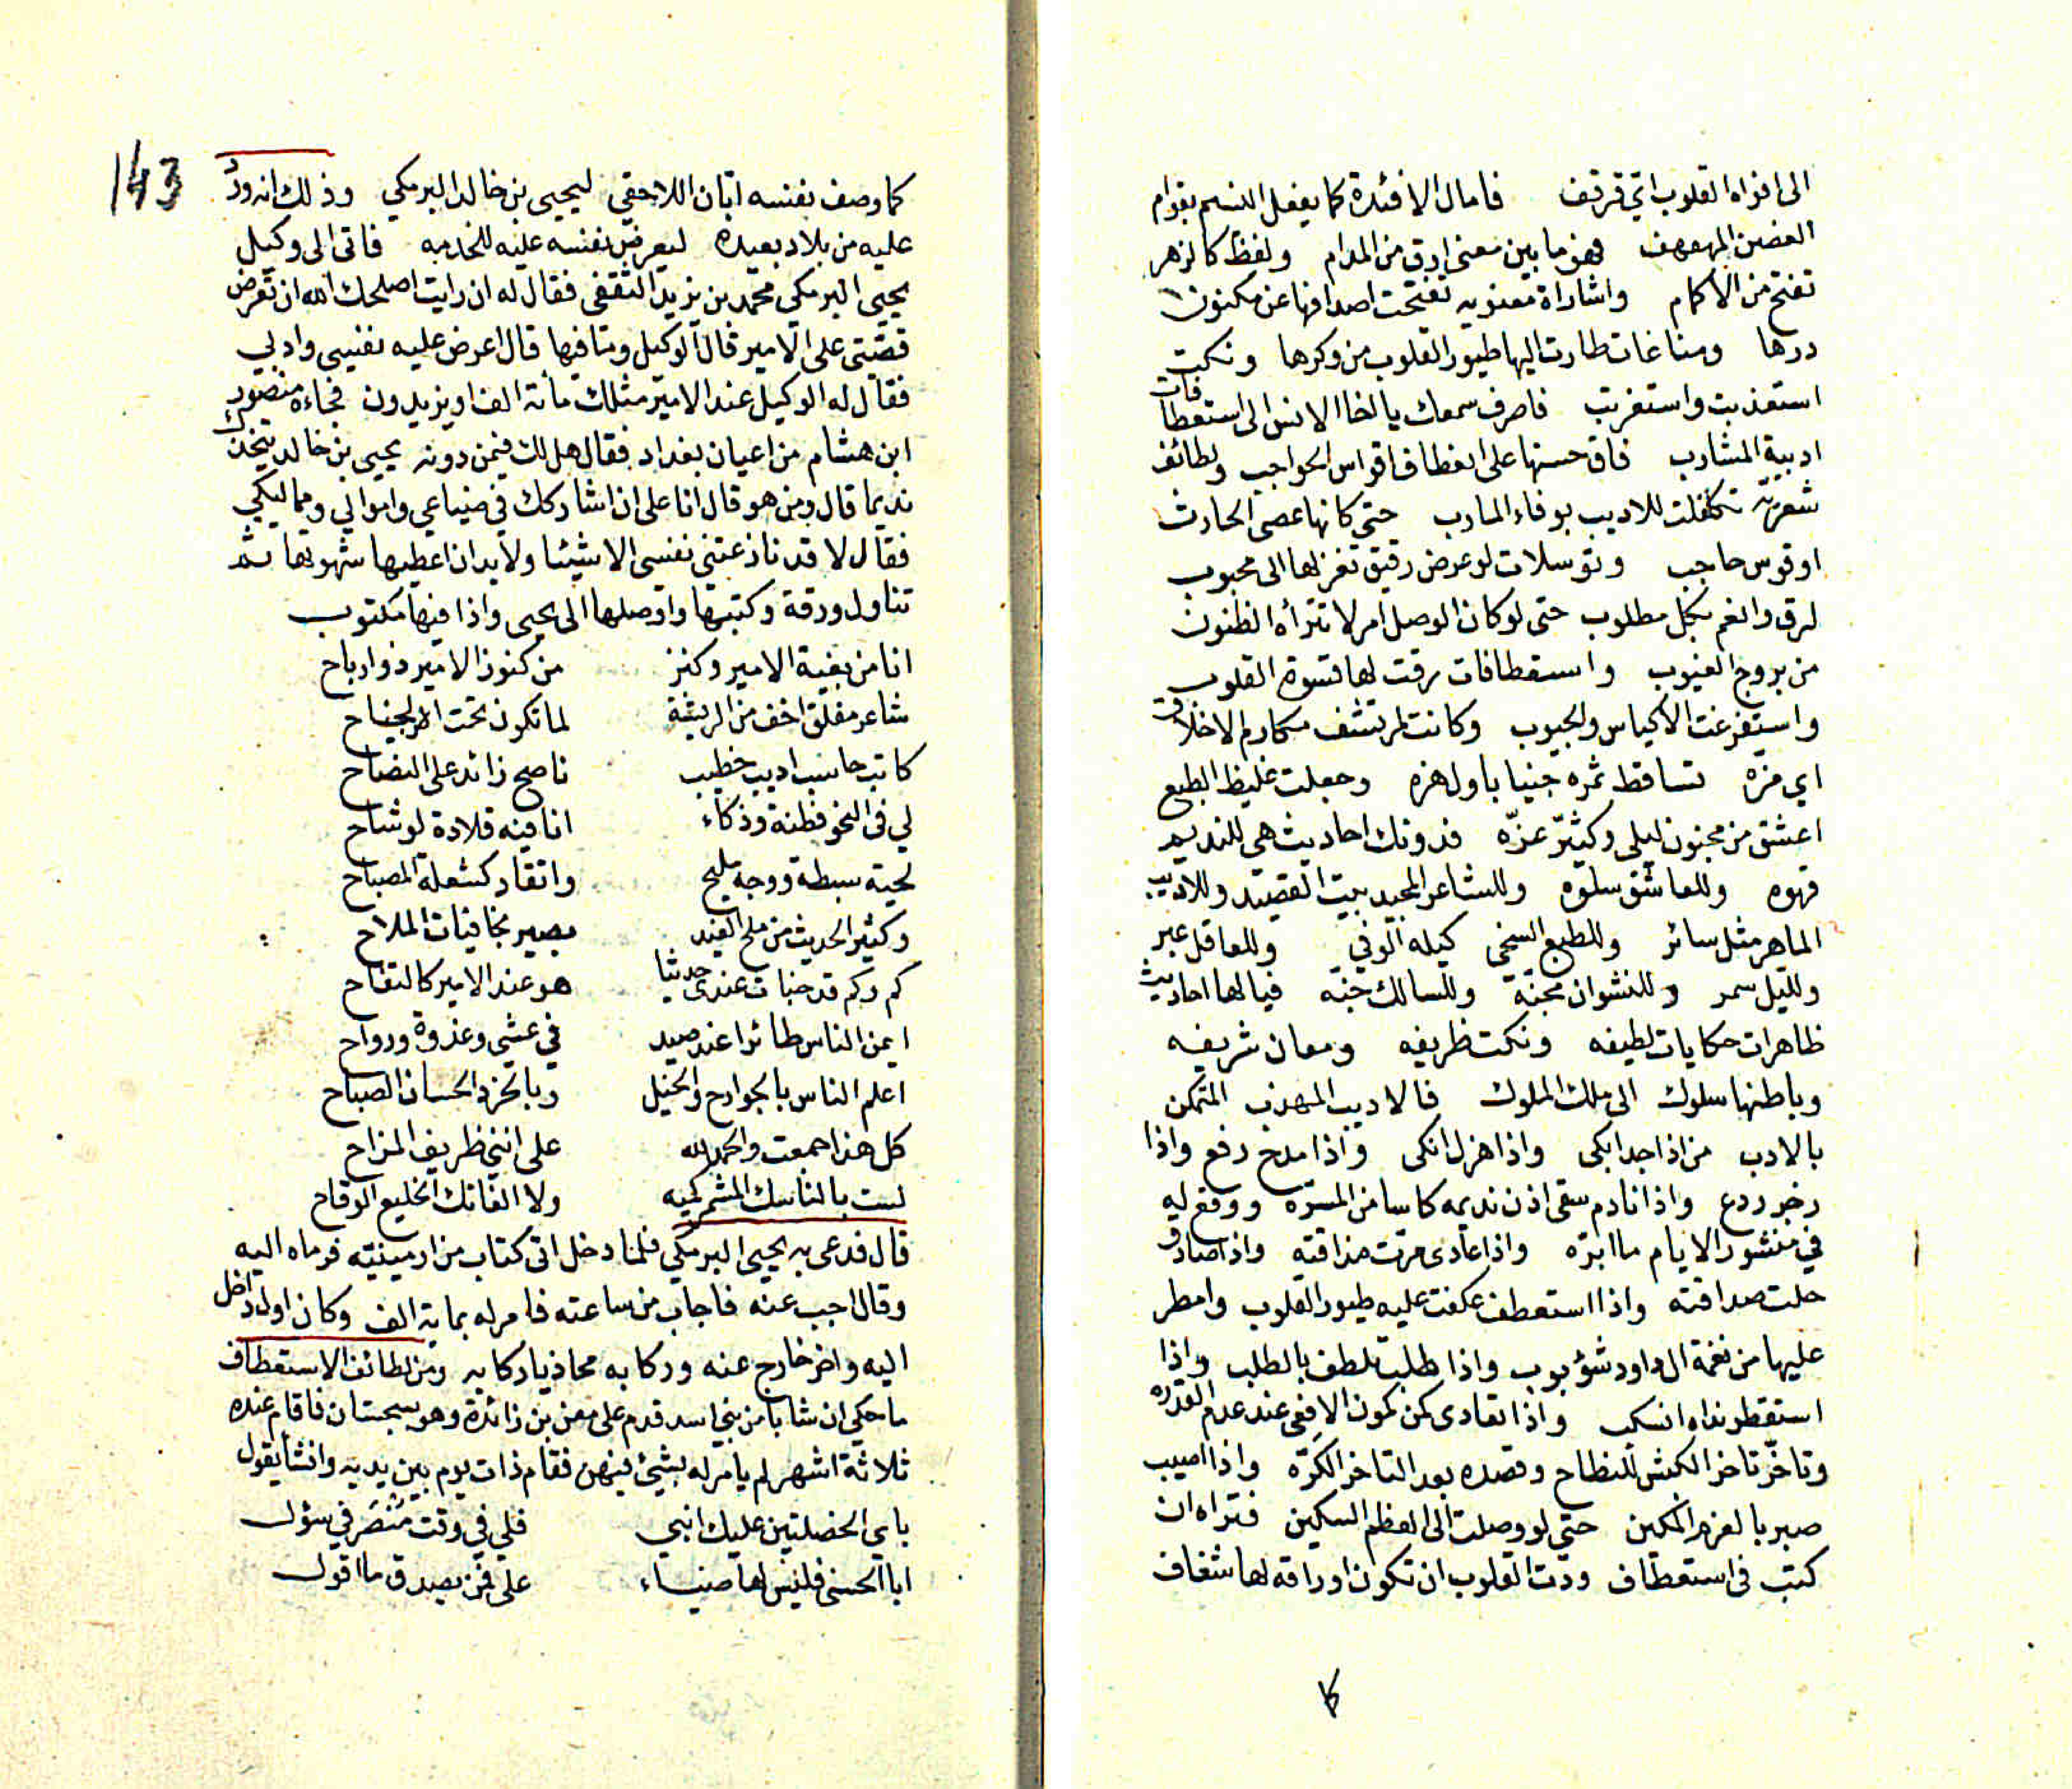 الى افواه القلوب اي قرقف فامال الافئدة كما يفعل النسيم بقوام
الغصن المهفهف فهو ما بين معنى ارق من المدام ولفظ كالزهر
تفتح من الاكمام واشاراة معنويه تفتحت اصدافها عن مكنون
دررها ومناغات طارت اليها طيور القلوب من وكرها ونكت
استعذبت واستغربت فاصرف سمعك يا اخا الانس الى استعطافات
ادبية المشارب فاق حسنها على انعطاف اقواس الحواجب ولطائف
شعريّه تكفلت للاديب بوفاء المارب حتى كانها عصى الحارث
او قوس حاجب وتوسلات لو عرض رقيق تغزلها الى محبوب
لرق وانعم بكل مطلوب حتى لو كان الوصل امر لا تترأه الظنون
من بروج الغيوب واستعطافات رقت لها قسوة القلوب
واستفرغت الاكياس والجيوب وكانت لمرتشف مكارم الاخلاق
اي مزه تساقط ثمره جنيا باول هزه وجعلت غليظ الطبع
اعشق من مجنون ليلى وكثيّر عزّه فدونك احاديث هي للنديم
قهوه وللعاشق سلوه وللشاعر المجيد بيت القصيد وللاديب
الماهر مثل سائر وللطبع السخي كيله الوفي وللعاقل عبر
ولليل سمر وللنشوان مجنّة وللسالك جنّه فيالها احاديث
ظاهرات حكايات لطيفه ونكت ظريفه ومعان شريفه
وباطنها سلوك الى ملك الملوك فالاديب المهذب المتمكن
بالادب من اذا جد ابكى واذا هزل انكى واذا مدح رفع واذا
زجر ردع واذا نادم سقى اذن نديمه كاسا من المسرّه ووقع له
في منشور الايام ما ابرّه واذا عادى مرّت مذاقته واذا صادق
حلت صداقته واذا استعطف عكفت عليه طيور القلوب وامطر
عليها من نغمة ال داود شؤبوب واذا طلب تلطف بالطلب واذا
استقطر نداه انسكب واذا تعادى كمن كمون الافعى عند عدم القدره
وتاخّر تاخر الكبش للنطاح وقصده بعد التاخر الكرّه واذا اصيب
صبر بالعزم المكين حتى لو وصلت الى العظم السكين فتراه ان
كتب في استعطاف ودّت القلوب ان تكون اوراقه لها شغاف
143
كما وصف نفسه ابّان اللاحقي ليحيى بن خالد البرمكي وذلك انه ورد
عليه من بلاد بعيده ليعرض نفسه عليه للخدمه فاتى الى وكيل
يحيى البرمكي محمد بن يزيد الثقفي فقال له ان رايت اصلحك الله ان تعرض
قصّتي على الامير قال الوكيل وما فيها قال اعرض عليه نفسي وادبي
فقال له الوكيل عند الامير مثلك مائة الف او يزيدون فجاءه منصور
ابن هشام من اعيان بغداد فقال هل لك فيمن دونه يحيى بن خالد يتخذك
نديما قال ومن هو قال انا على ان اشاركك في ضياعي واموالي ومماليكي
فقال لا قد نازعتني نفسي الا شيئا ولا بد ان اعطيها شهوتها ثم
تناول ورقة وكتبها واوصلها الى يحيى واذا فيها مكتوب
انا من بغية الامير وكنز من كنوز الامير ذو ارباح
شاعر مفلق اخف من الريشة لما تكون تحت الجناح
كاتب حاسب اديب خطيب ناصح زائد على النصاح
لي في النحو فطنة وذكاء انا فيه قلادة لوشاح
لحية سبطة ووجه مليح واتقاد كشعلة المصباح
وكثير الحديث من ملح الغيد بصير بخافيات الملاح
كم وكم قد خبات عندي حديثا هو عند الامير كالتفاح
ايمن الناس طائرا عند صيد في عشي وغدوة ورواح
اعلم الناس بالجوارح والخيل وبالخرد الحسان الصباح
كل هذا جمعت والحمد لله على انني ظريف المزاح
لست بالناسك المشمر كميه ولا الفاتك الخليع الوقاح
قال فدعى به يحيى البرمكي فلما دخل اتى كتاب من ارمينيّه فرماه اليه
وقال اجب عنه فاجاب من ساعته فامر له بماية الف وكان اول داخل
اليه واخر خارج عنه وركابه محاذيا ركابه ومن لطائف الاستعطاف
ما حكي ان شابا من بني اسد قدم على معن بن زائدة وهو بسجستان فاقام عنده
ثلاثة اشهر لم يامر له بشيئ فيهن فقام ذات يوم بين يديه وانشأ يقول
باي الخصلتين عليك اثني فلي في وقت منصرفي سؤل
ابا الحسنى فليس لها ضياء علي فمن يصدق ما اقول